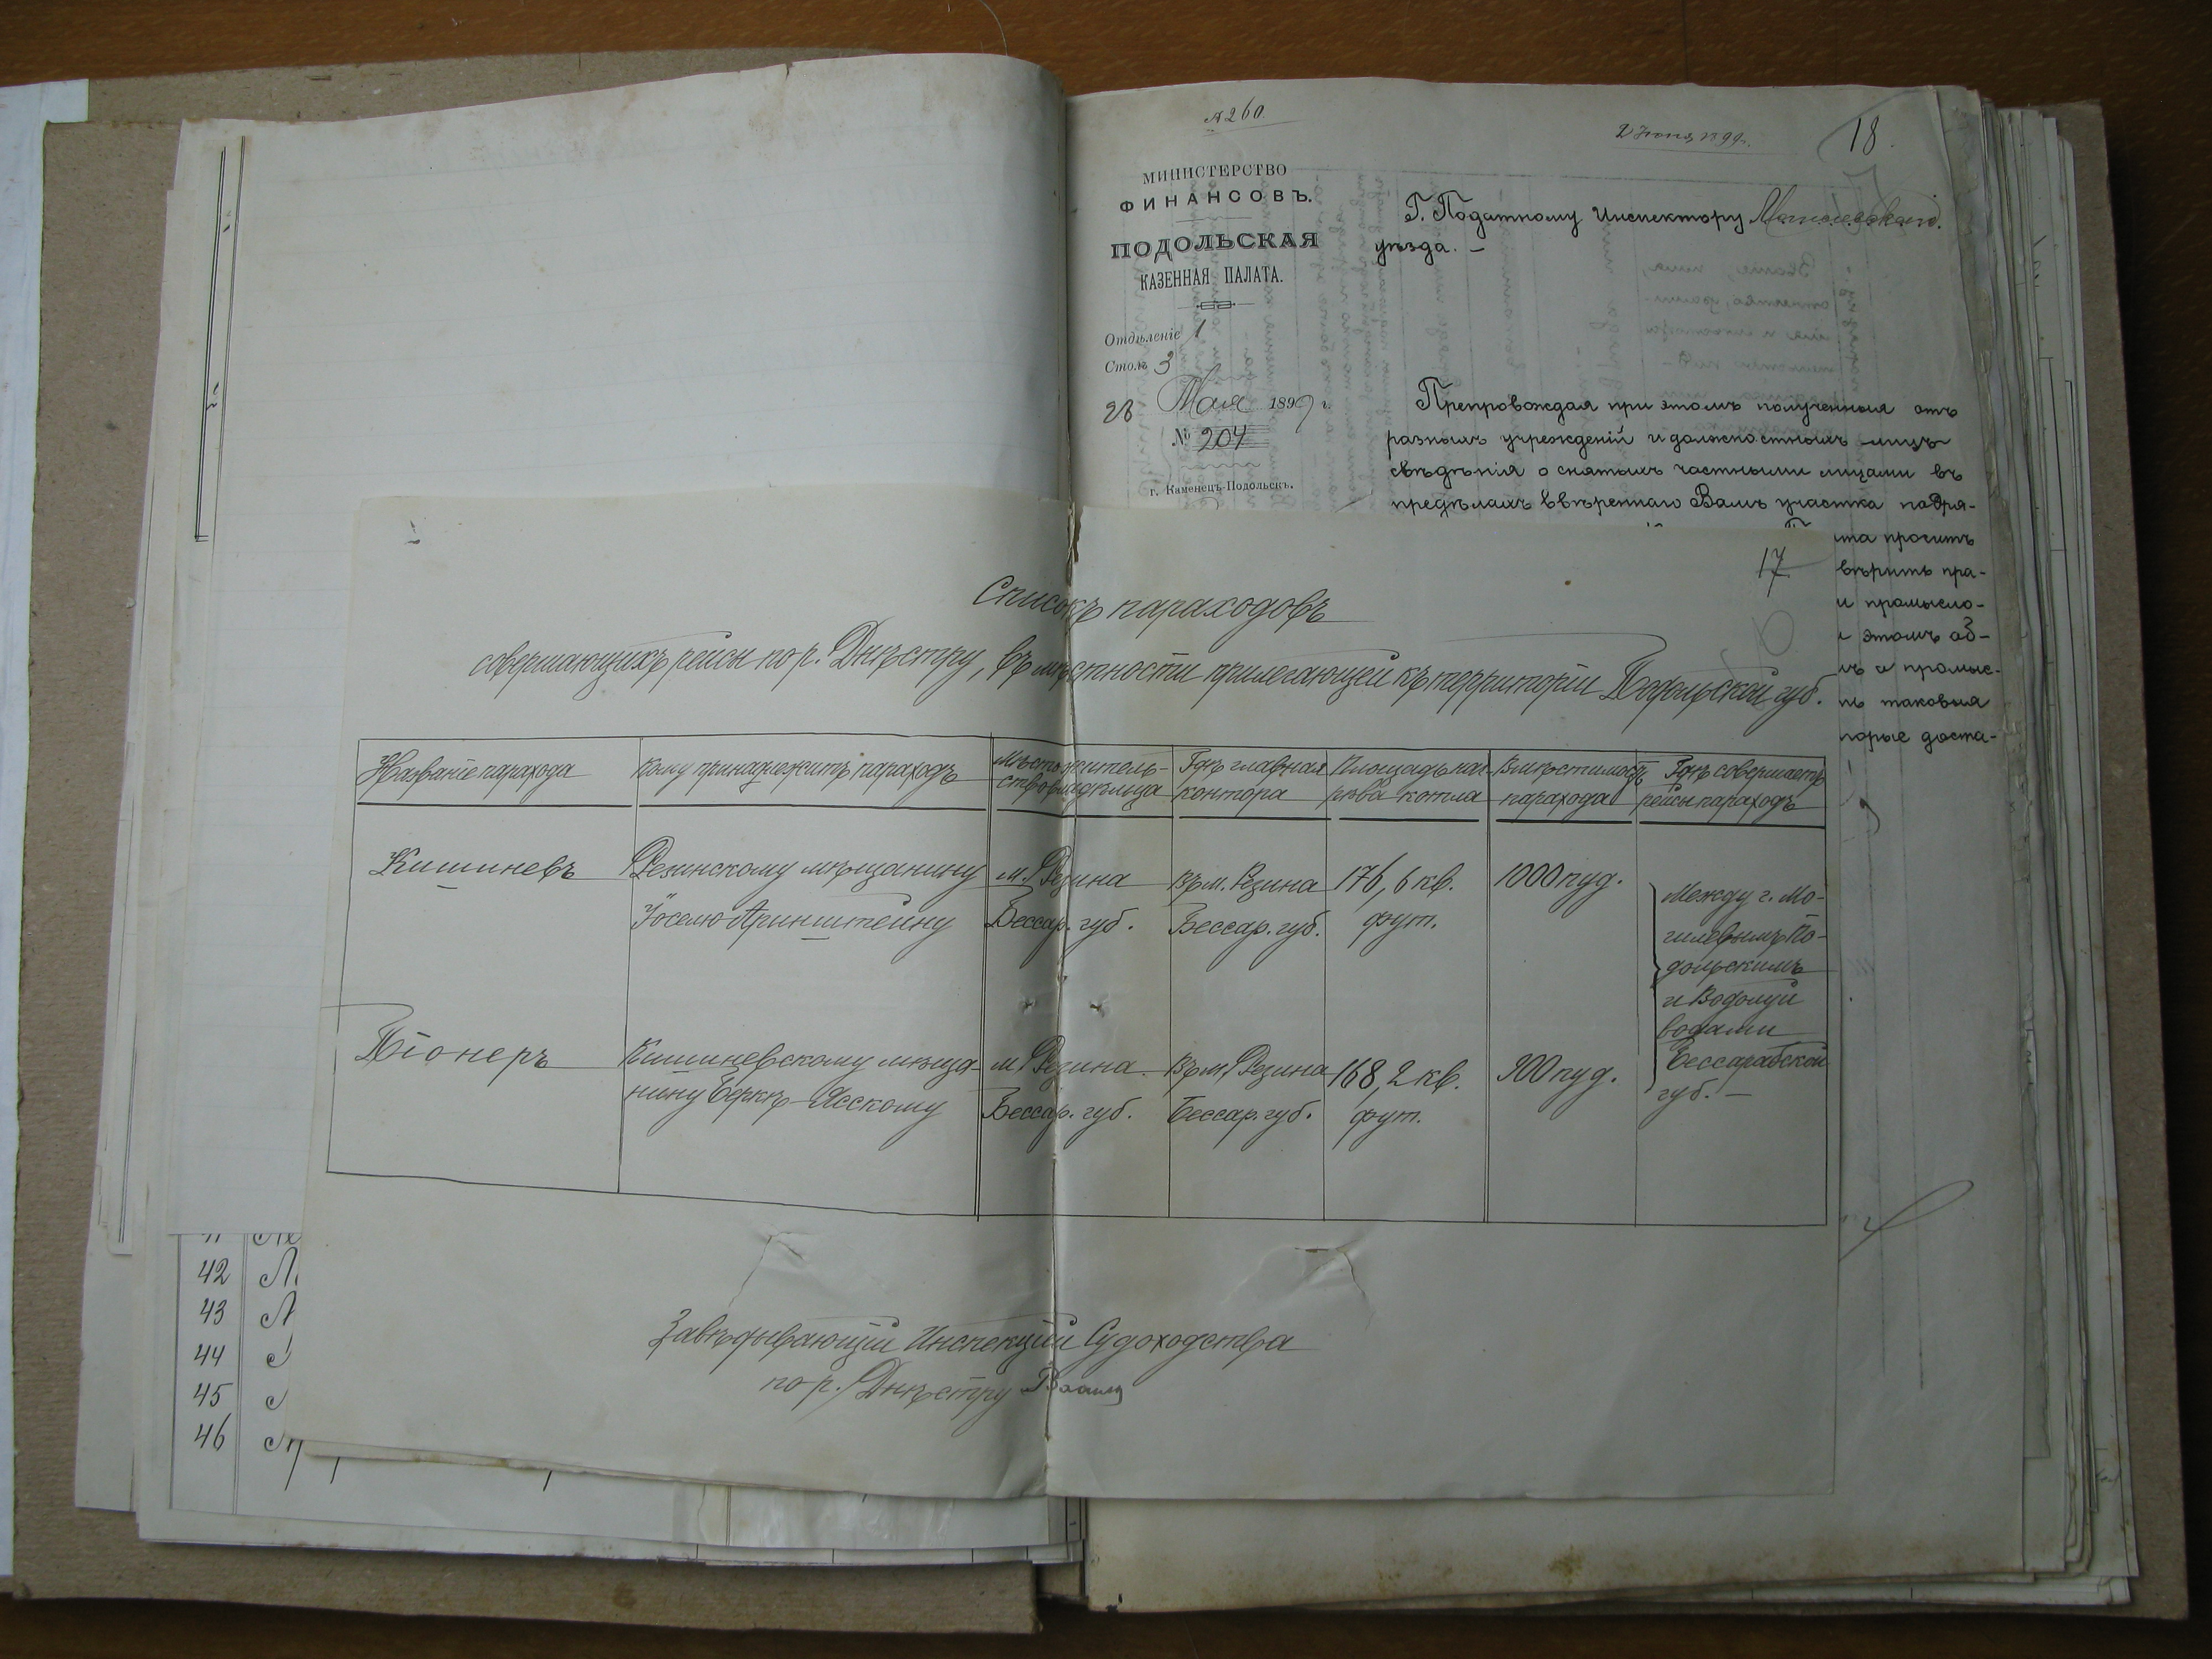 № 260.
2 Июня 1899 г.
18.
МИНИСТЕРСТВО
ФИНАНСОВЪ.
ПОДОЛЬСКАЯ
КАЗЕННАЯ ПАЛАТА.
Отдѣленіе 1
Столъ 3
28 Мая 1899 г.
№ 204
г. Каменецъ-Подольскъ.
Г. Податному Инспектору
уѣзда. —
Препровождая при этомъ полученныя отъ
разныхъ учрежденій и должностныхъ лицъ
свѣдѣнія о снятыхъ частными лицами въ
предѣлахъ ввѣреннаго Вамъ участка подря-
ита проситъ
вѣрить пра-
и промысло-
и этомъ об-
ъ и промыс-
ть таковыя
торые доста-
17
Списокъ параходовъ
совершающихъ рейсы по р. Днѣстру, въ мѣстности прилегающей къ территоріи Подольской губ.
Названіе парахода
Кому принадлежитъ параходъ
Мѣсто житель-
ство владѣльца
Гдѣ главная
контора
Площадь наг-
рѣва котла
Вмѣстимость
парахода
Гдѣ совершаетъ
рейсы параходъ
Кишиневъ
Резинскому мѣщанину
Іоселю Аринштейну
м. Резина
Бессар. губ.
Въ м. Резина
Бессар. губ.
176,6 кв.
фут.
1000 пуд.
Между г. Мо-
гилевымъ По-
дольскимъ
и Водолуй
водами
Бессарабской
губ. —
Піонеръ
Кишиневскому мѣща-
нину Беркѣ Ясскому
м. Резина
Бессар. губ.
Въ м. Резина
Бессар. губ.
168,2 кв.
фут.
900 пуд.
Завѣдывающій Инспекціей Судоходства
по р. Днѣстру
42
43
44
45
46